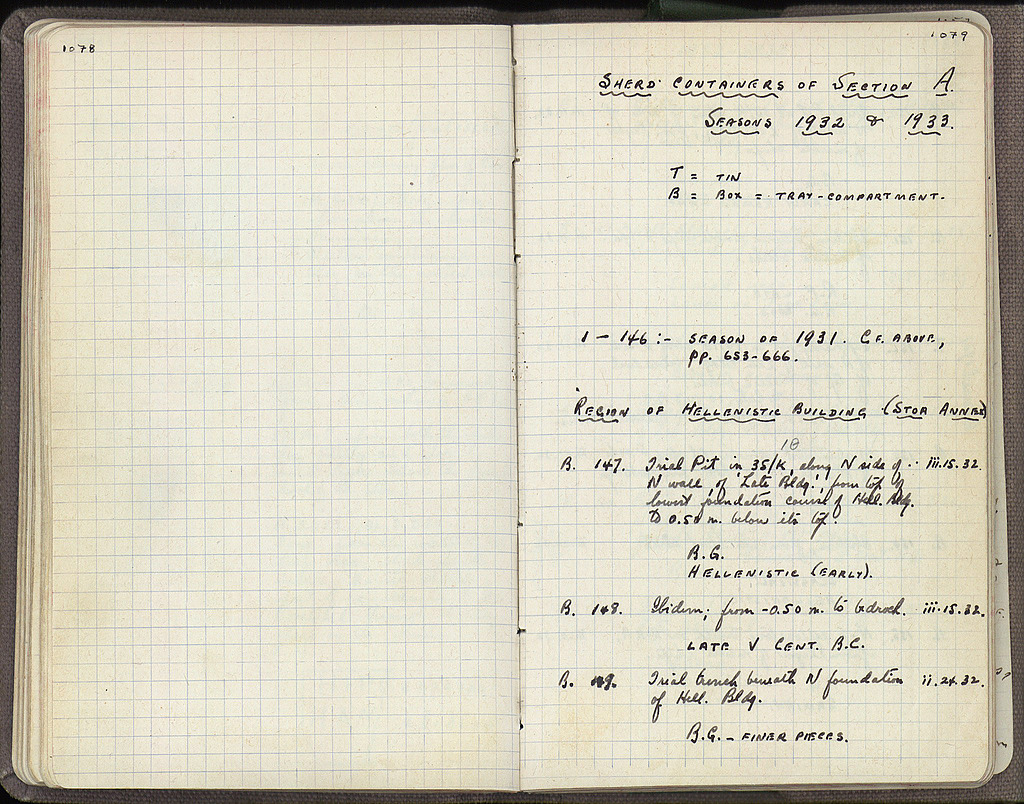 1078
1079
SHERD CONTAINERS OF SECTION A.
SEASONS 1932 & 1933.
T = TIN
B = BOX = TRAY-COMPARTMENT.
1 – 146 :- SEASON OF 1931. CF. ABOVE,
pp. 653-666.
REGION OF HELLENISTIC BUILDING (STOA ANNEX)
18
B. 147. Trial Pit in 35/K, along N side of .. iii.15.32.
N wall of 'Late Bldg.', from top of
lowest foundation course of Hell. Bldg.
to 0.50 m. below its top.
B.G.
HELLENISTIC (EARLY).
B. 148. Ibidem; from -0.50 m. to bedrock. iii.15.32.
LATE V CENT. B.C.
B. 149. Trial trench beneath N foundation ii.24.32.
of Hell. Bldg.
B.G. – FINER PIECES.